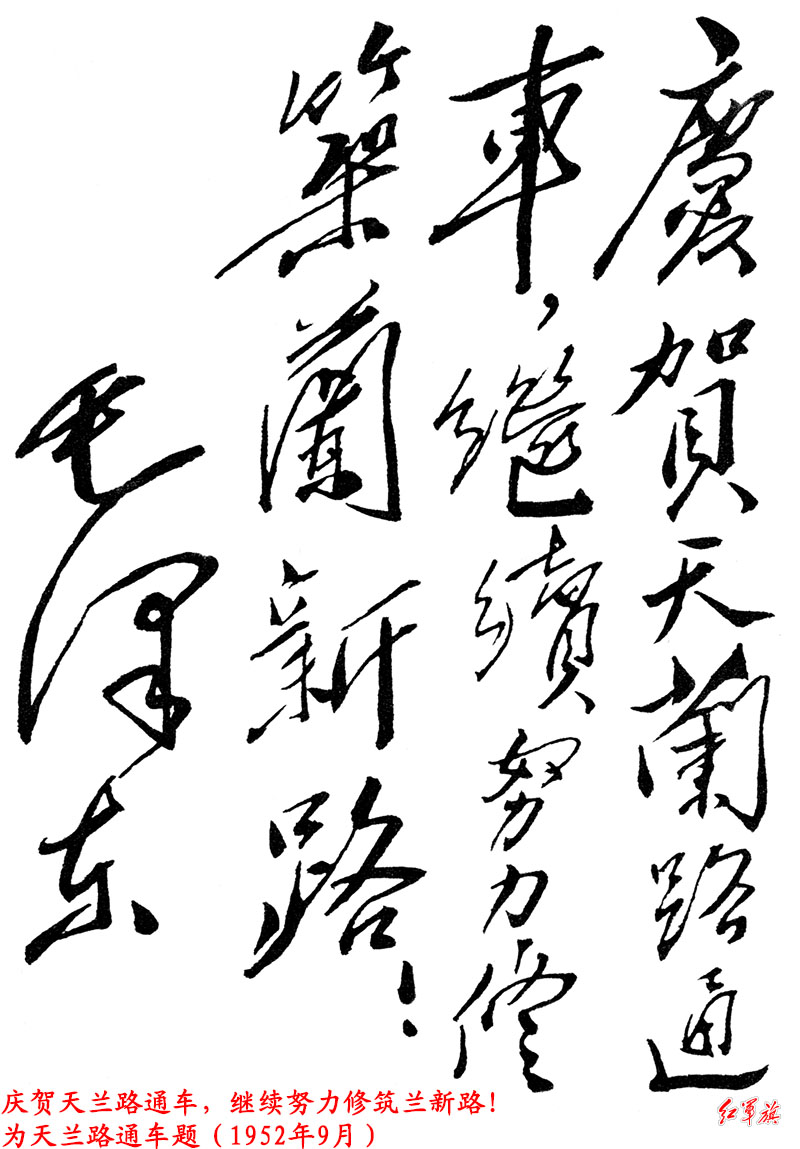 慶賀天蘭路通
車，繼續努力修
築蘭新路！
毛澤东
庆贺天兰路通车，继续努力修筑兰新路！
为天兰路通车题（1952年9月）
红军旗